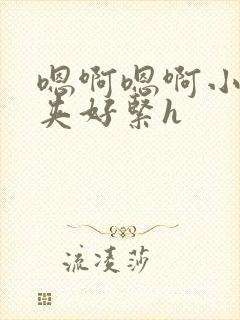 嗯啊嗯啊小
英好紧h
流凌莎